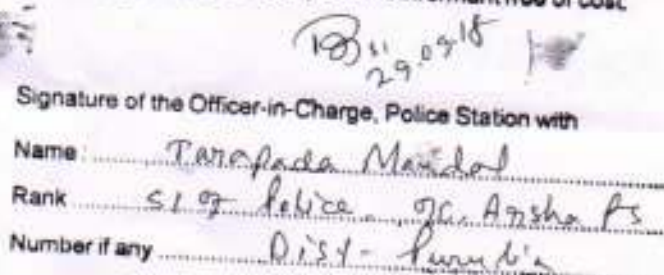 free of cost.
SI
29.09.18
Signature of the Officer-in-Charge, Police Station with
Name: Tarapada Mandal
Rank SI of Police. OC. Arsha PS
Number if any Dist - Purulia